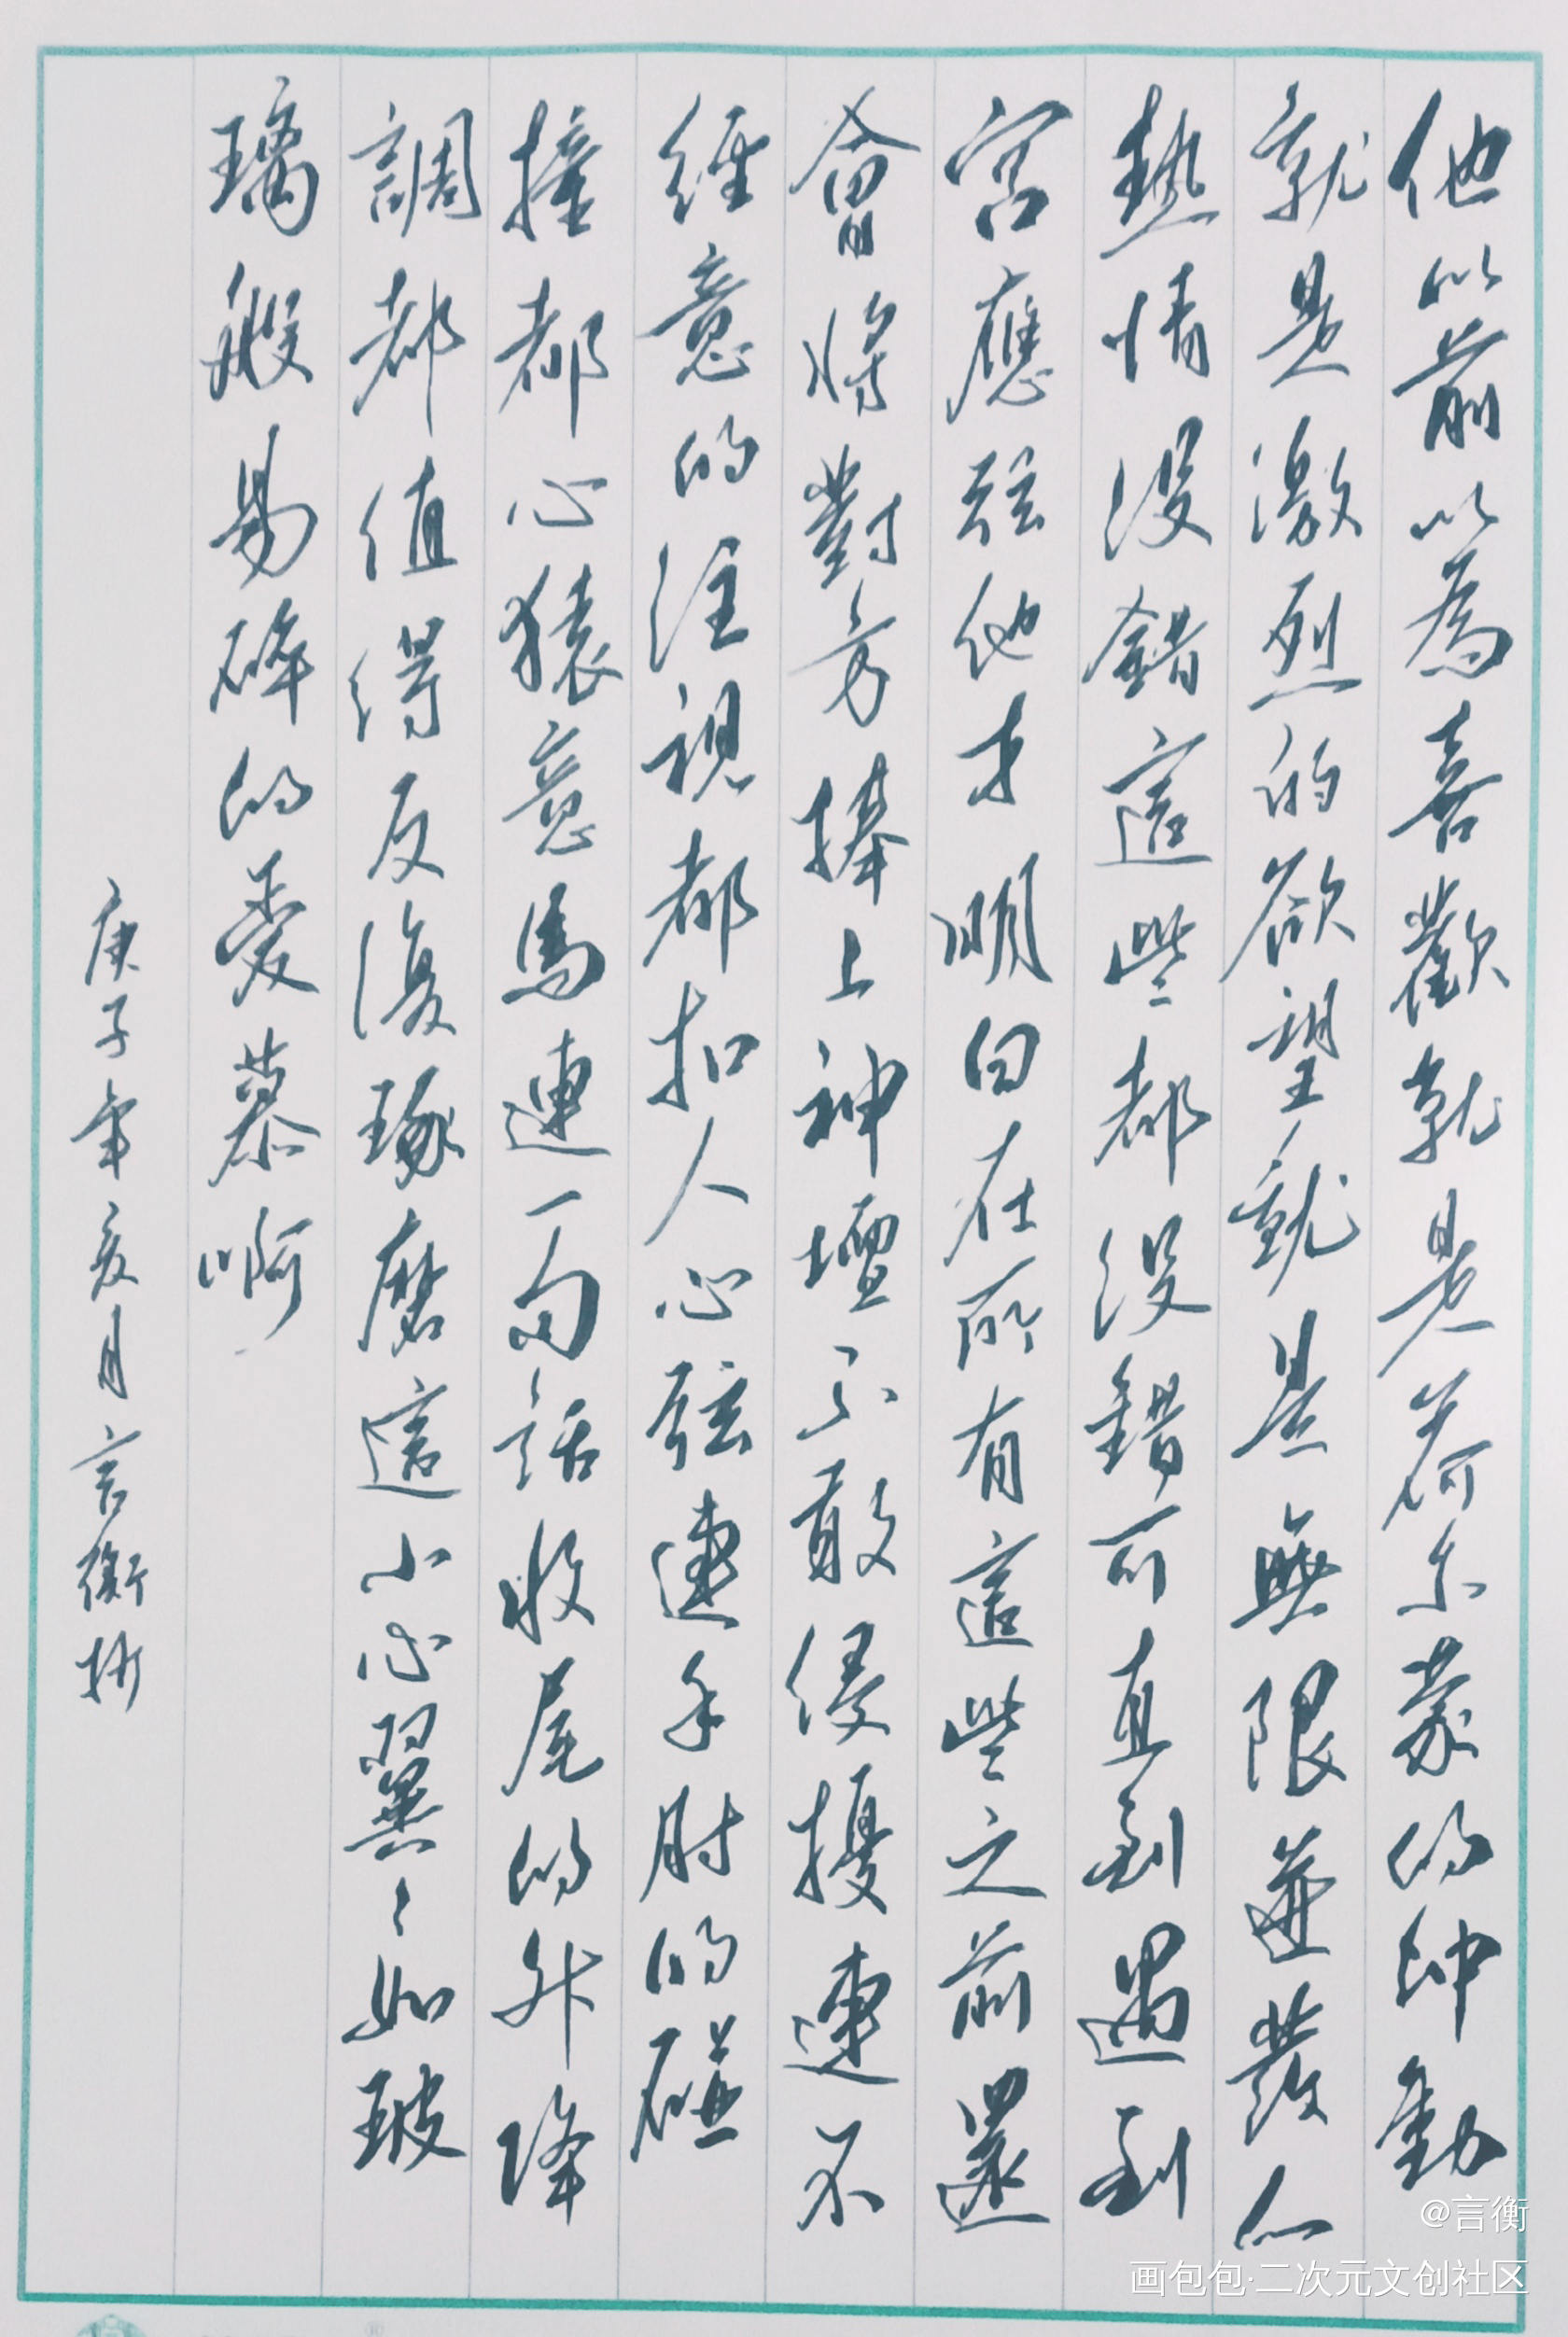 他以前以為喜歡就是荷尔蒙的冲動
就是激烈的欲望就是無限蓬發的
熱情沒錯這些都沒錯可直到遇到
宮應弦他才明白在所有這些之前還
會將對方捧上神壇不敢侵擾連不
經意的注視都扣人心弦連手肘的碰
撞都心猿意馬連一句話收尾的升降
調都值得反復琢磨這小心翼〻如玻
璃般易碎的愛慕啊
庚子年亥月言衡抄
@言衡
画包包·二次元文创社区